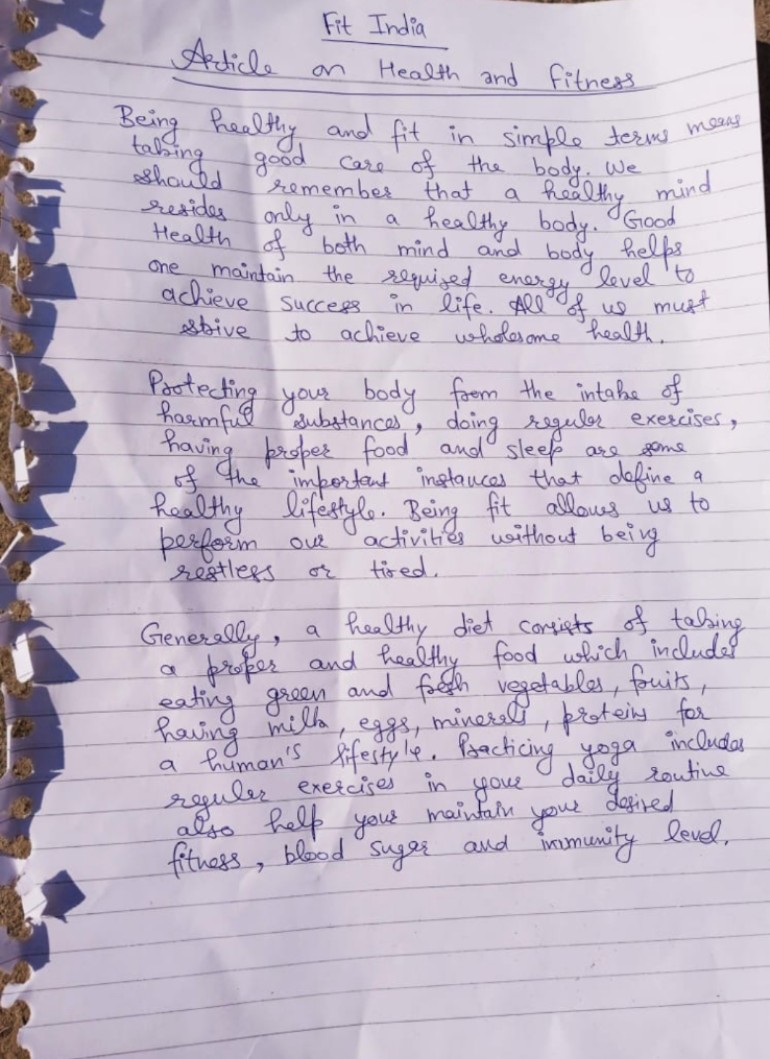 Fit India
Article on Health and Fitness
Being healthy and fit in simple terms means
taking good care of the body. We
should remember that a healthy mind
resides only in a healthy body. Good
Health of both mind and body helps
one maintain the required energy level to
achieve success in life. All of us must
strive to achieve wholesome health.
Protecting your body from the intake of
harmful substances, doing regular exercises,
having proper food and sleep are some
of the important instances that define a
healthy lifestyle. Being fit allows us to
perform our activities without being
restless or tired.
Generally, a healthy diet consists of taking
a proper and healthy food which includes
eating green and fresh vegetables, fruits,
having milk, eggs, minerals, proteins for
a human's lifestyle. Practicing yoga includes
regular exercises in your daily routine
also help your maintain your desired
fitness, blood sugar and immunity level.